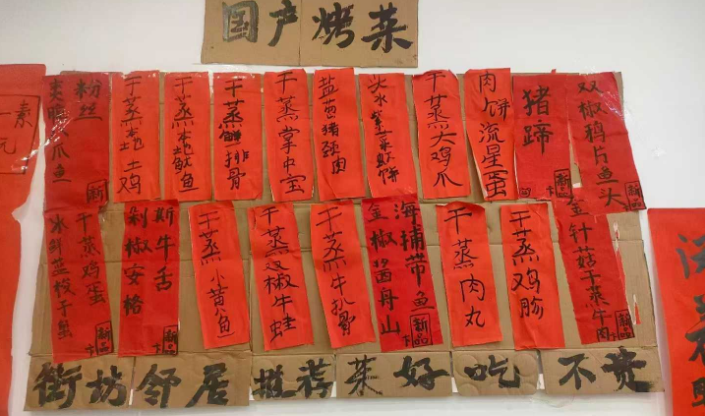 国产烤菜
素
一元
粉丝
爪鱼
新
干蒸本地土鸡
干蒸本地鱿鱼
干蒸鲜排骨
干蒸掌中宝
盐
肉
头水紫菜
饼
干蒸大鸡爪
肉饼流星蛋
猪蹄
新品
双椒鸦片鱼头
新品
干蒸鸡蛋
新品
斯牛舌
剁椒安格
新品
干蒸小黄鱼
干蒸双椒牛蛙
干蒸牛扒骨
海捕带鱼
金椒
舟山
新品
干蒸肉丸
干蒸鸡胗
金针菇干蒸牛肉
新品
街坊邻居 推荐 菜好吃 不贵